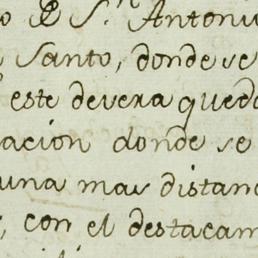 o D S.n Antoni
Santo, donde se
este devera qued
acion donde se
una mas distan
con el destacam